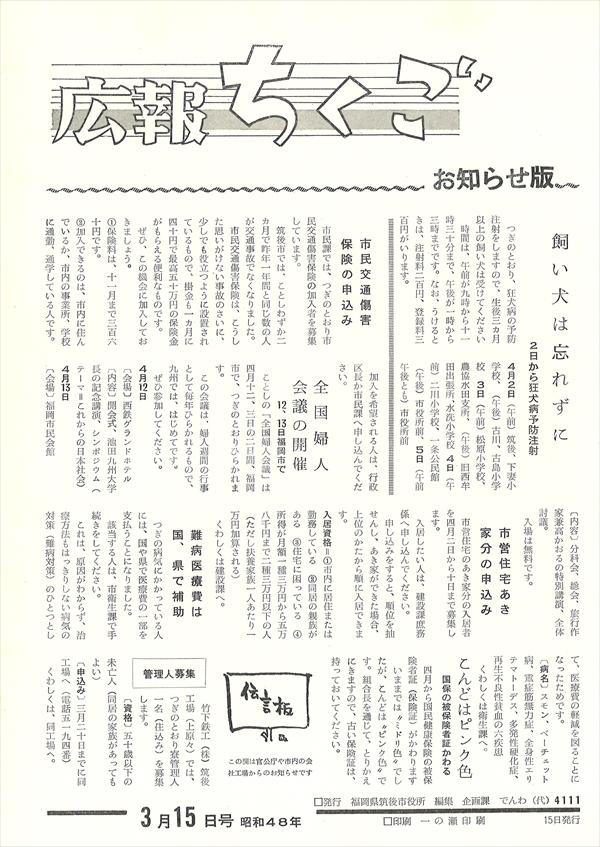 広報ちくご
お知らせ版
飼い犬は忘れずに
2日から狂犬病予防注射
つぎのとおり、狂犬病の予防
注射をしますので、生後三ヵ月
以上の飼い犬は受けてください
時間は、午前が九時から十一
時三十分まで、午後が一時から
三時までです。なお、うけると
きは、注射料二百円、登録料三
百円がいります。
4月2日（午前）筑後、下妻小
学校、（午後）古川、古島小学
校 3日（午前）松原小学校、
農協水田支所、（午後）旧西牟
田出張所、水洗小学校 4日（午
前）二川小学校、一条公民館
（午後）市役所前、5日（午前
午後とも）市役所前
市民交通傷害
保険の申込み
市民課では、つぎのとおり市
民交通傷害保険の加入者を募集
しています。
筑後市では、ことしわずか二
ヵ月で昨年一年間と同じ数の人
が交通事故でなくなりました。
市民交通傷害保険は、こうし
た思いがけない事故のさいに、
少しでも役立つように設置され
ているもので、掛金も一ヵ月に
四十円で最高五十万円の保険金
がもらえる便利なものです。
ぜひ、この機会に加入してお
きましょう。
①保険料は、十一月まで三百六
十円です。
②加入できるのは、市内に住ん
でいるか、市内の事業所、学校
に通勤、通学している人です。
加入を希望される人は、行政
区長か市民課へ申し込んでくだ
さい。
全国婦人
会議の開催
12、13日福岡市で
ことしの「全国婦人会議」は
四月十二、三日の二日間、福岡
市で、つぎのとおりひらかれま
す。
この会議は、婦人週間の行事
として毎年ひらかれるもので、
九州では、はじめてです。
ぜひ参加してください。
4月12日
〔会場〕西鉄グランドホテル
〔内容〕開会式、池田九州大学
長の記念講演、シンポジウム（
テーマ＝これからの日本社会）
4月13日
〔会場〕福岡市民会館
〔内容〕分科会、総会、旅行作
家兼高かおるの特別講演、全体
討議。
入場は無料です。
市営住宅あき
家分の申込み
市営住宅のあき家分の入居者
を四月二日から十日まで募集し
ます。
入居したい人は、建設課庶務
係へ申し込んでください。
申し込みをすると、順位を抽
せんし、あき家ができた場合、
上位のかたから順に入居できま
す。
入居資格＝①市内に居住または
勤務している ②同居の親族が
ある ③住宅に困っている ④
所得が月額一種三万円から五万
八千円まで二種三万円以下の人
（ただし扶養家族一人あたり一
万円加算される）
くわしくは建設課へ。
難病医療費は
国、県で補助
つぎの病気にかかっている人
には、国や県で医療費の一部を
支払うことになりました。
該当する人は、市衛生課で手
続きをしてください。
これは、原因がわからず、治
療方法もはっきりしない病気の
対策（難病対策）のひとつとし
て、医療費の軽減を図ることに
なったためです。
〔病名〕スモン、ベーチェット
病、重症筋無力症、全身性エリ
テマトーデス、多発性硬化症、
再生不良性貧血の六疾患
くわしくは衛生課へ。
こんどはピンク色
国保の被保険者証かわる
四月から国民健康保険の被保
険者証（保険証）がかわります
いままでは〝ミドリ色〟でし
たが、こんどは〝ピンク色〟で
す。組合長を通じて、とりかえ
にきますので、古い保険証は、
持っておいてください。
伝言板
この欄は官公庁や市内の会
社工場からのお知らせです
管理人募集
竹下鉄工（株）筑後
工場（上原々）では、
つぎのとおり寮管理人
一名（住込み）を募集
します。
〔資格〕五十歳以下の
未亡人（同居の家族があっても
よい）
〔申込み〕三月二十日までに同
工場へ（電話五一九四番）
くわしくは、同工場へ。
3月15日号 昭和48年
□発行 福岡県筑後市役所 編集 企画課 でんわ（代）4111
□印刷 一の瀬印刷 15日発行